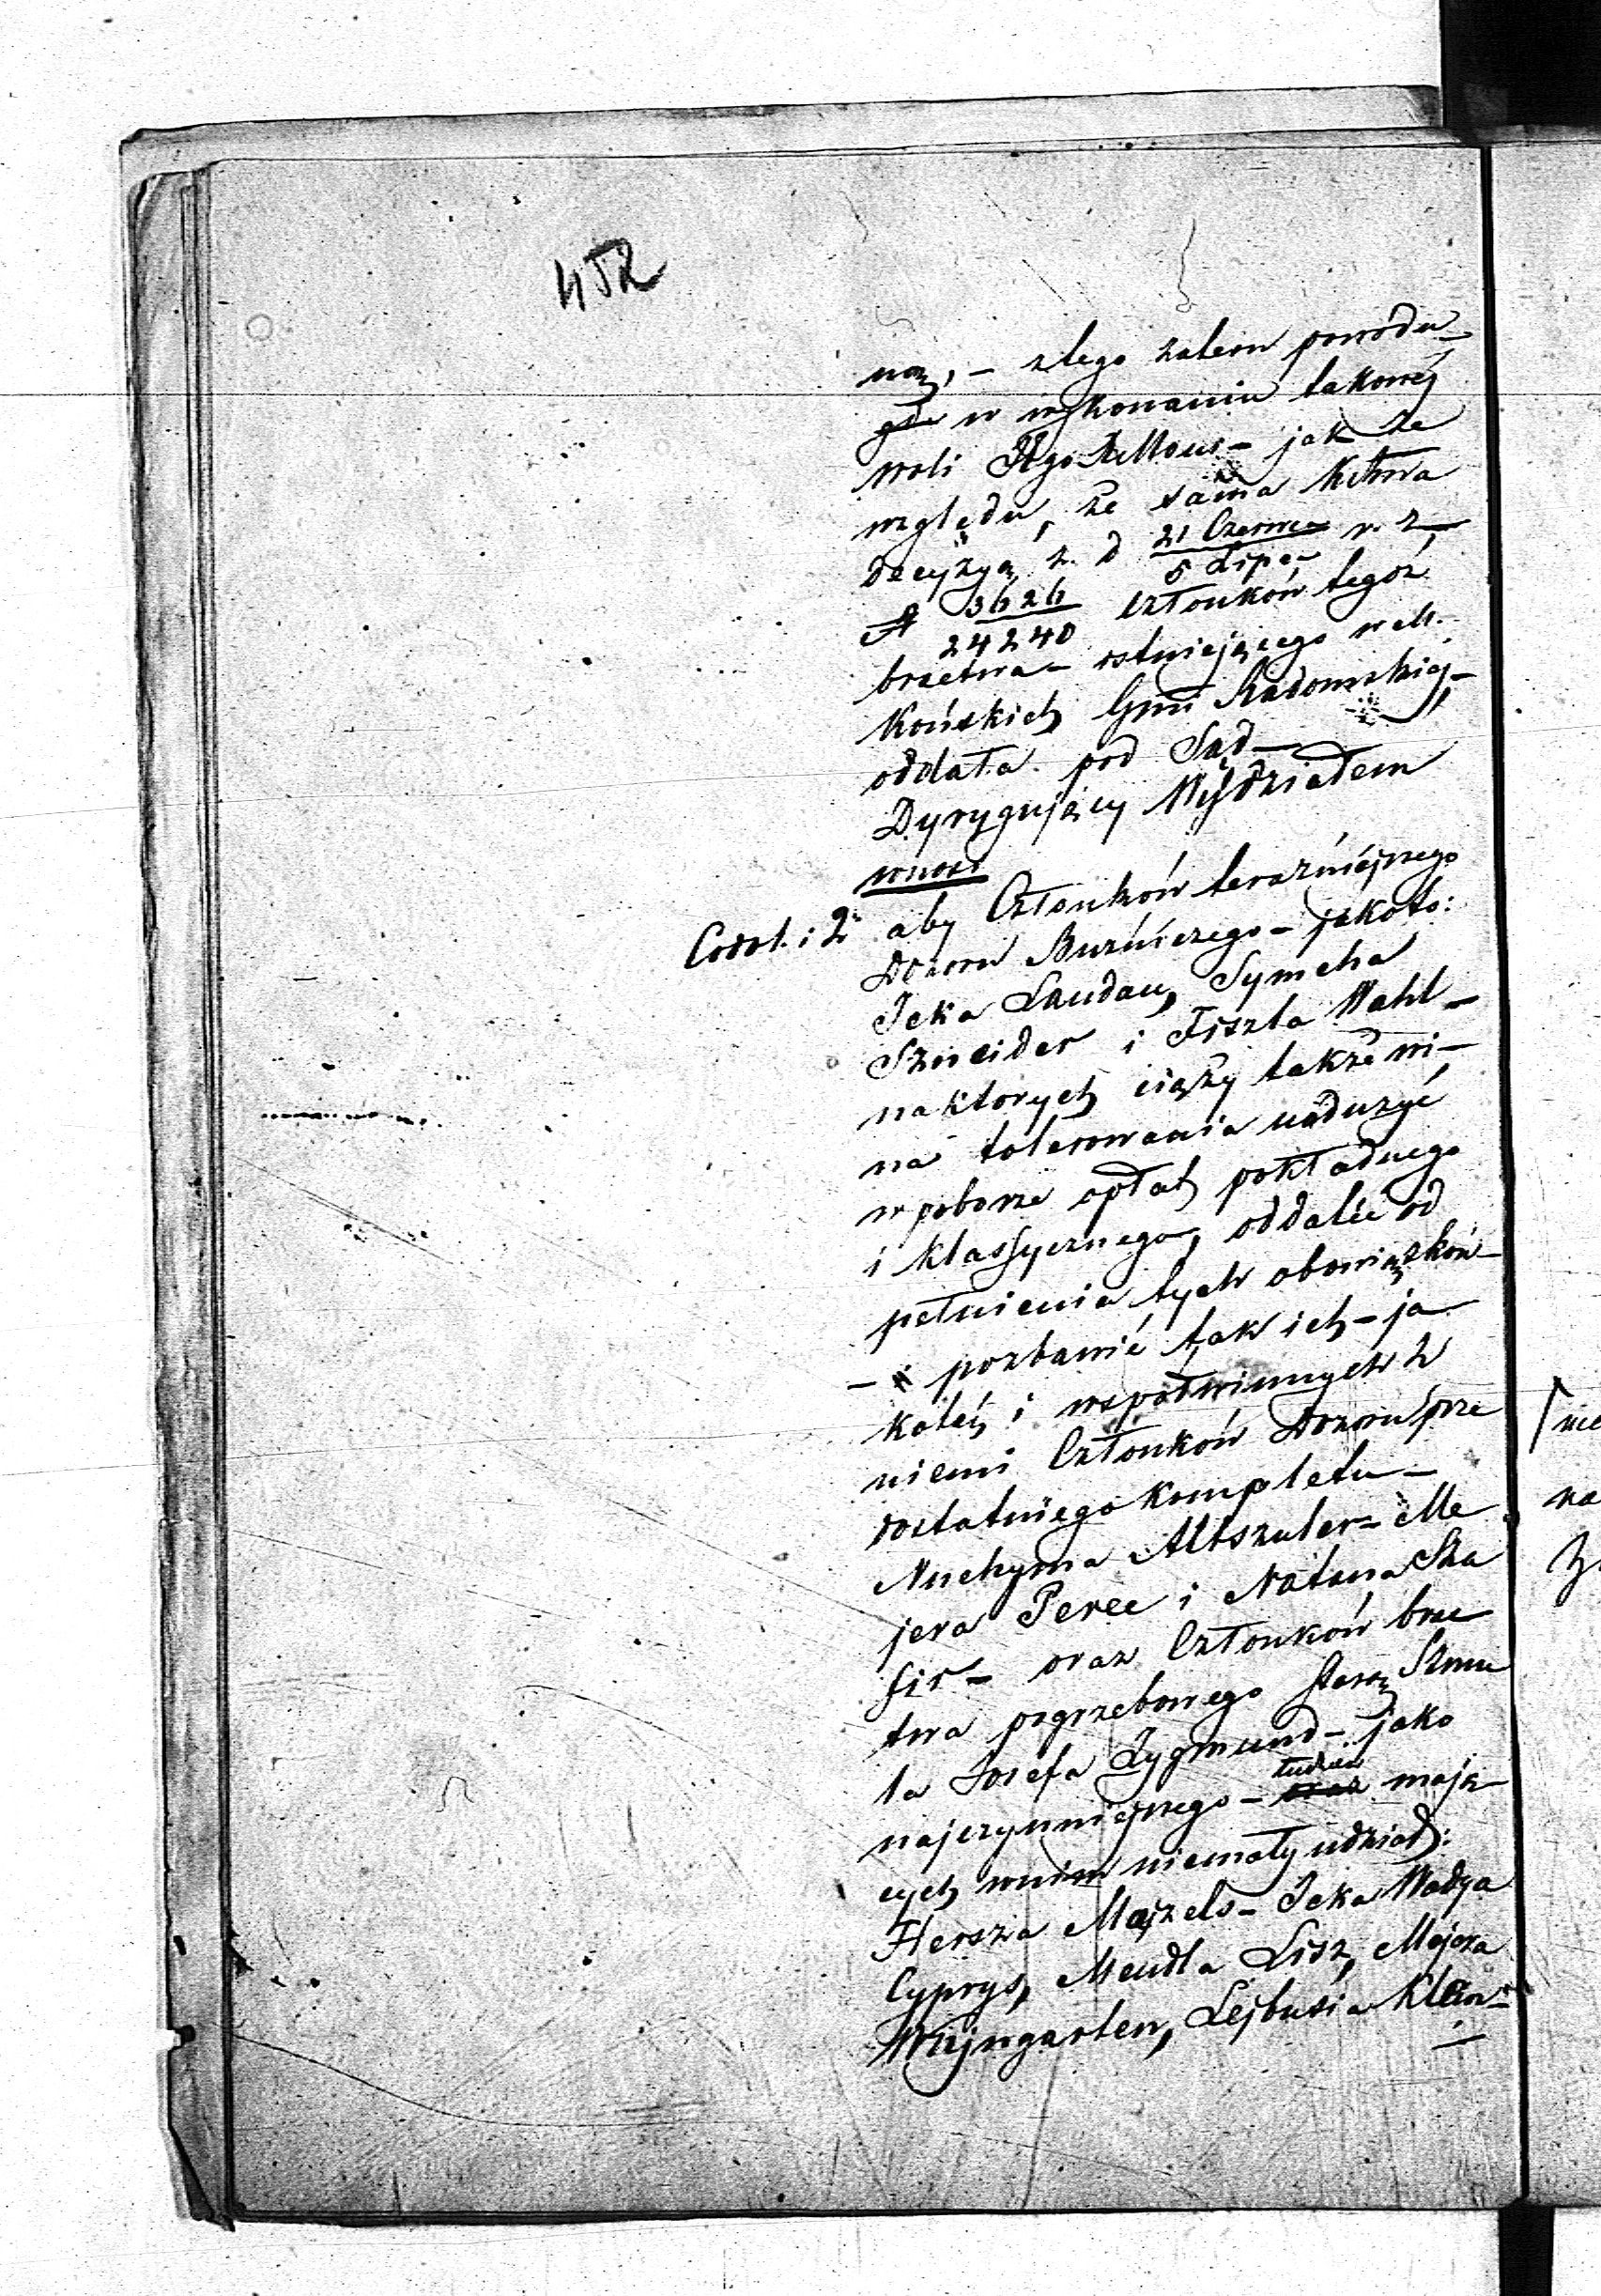 452
ną, – z tego zatem powodu
gdy w wykonaniu takowéj
woli – jak ze
względu, że sama
decyzyą z d 21 Czerwca / 5 Lipca r. z.
№ 3626 / 24240 Członków tegoż
bractwa – istniejącego w M.
Końskich Gnii Radomskiéj –
oddała pod Sąd –
Dyrygujący Wydziałem
wnosi
Co do 1. i 2. aby Członków teraźniejszego
Dozoru Bużniczego – jakoto:
Icka Landau, Symcha
Szneider i Fiszla Wahl –
na ktorych ciąży także wi–
na tolerowania nadużyć
w poborze opłat pokładnego
i klassycznego, oddalić od
pełnienia tych obowiązków –
– i pozbawić tak ich – ja
koteż i wspołwinnych z
niemi Członków Dozoru prze
dostatniego kompletu –
Nuchyma Altszuler – Me
jera Perec i Natana Sza
fir – oraz Członków brac
twa pogrzebowego Szmu
la Josefa Zygmund – jako
najczynniejszego – oraz tudzież mają
cych w nim niemały udział:
Hersza Majzels – Icka Wadya
Cyprys, Mendla Lisz, Majera
Wajngarten, Lejbusia Klein –